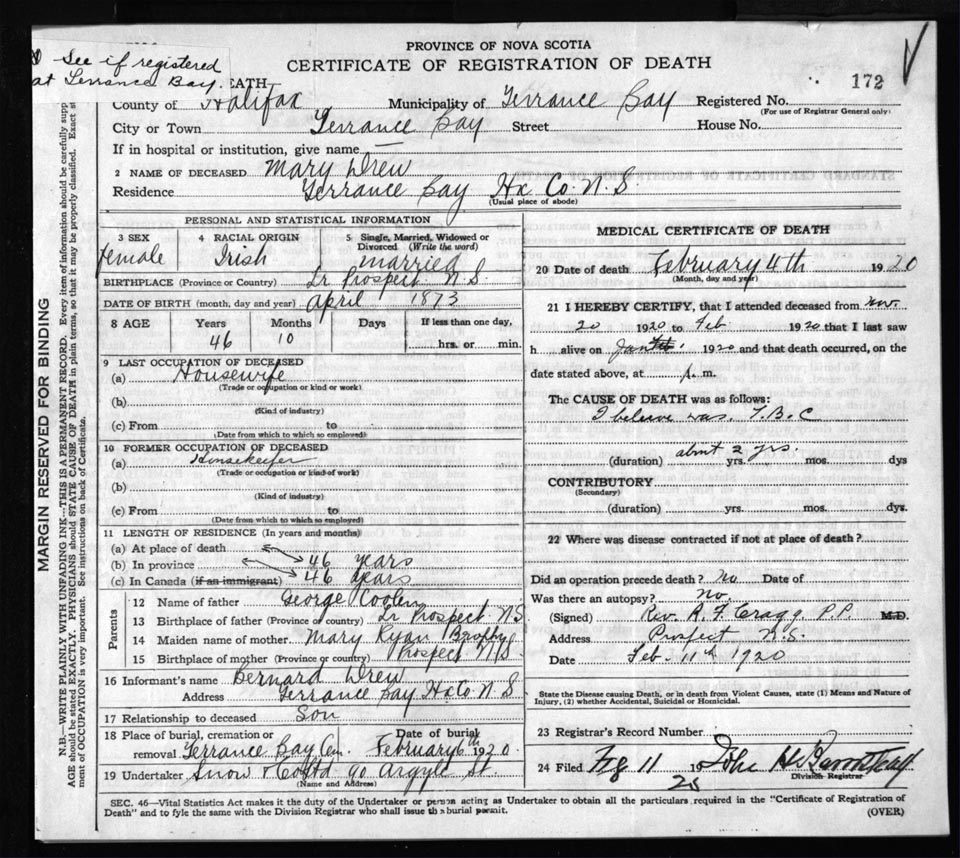 PROVINCE OF NOVA SCOTIA
CERTIFICATE OF REGISTRATION OF DEATH
See if registered
at Terrance Bay. EATH
172
County of Halifax Municipality of Terrance Bay Registered No.
(For use of Registrar General only)
City or Town Terrance Bay Street House No.
If in hospital or institution, give name —
2 NAME OF DECEASED Mary Drew
Residence Terrance Bay Hx Co. N.S.
(Usual place of abode)
PERSONAL AND STATISTICAL INFORMATION
3 SEX 4 RACIAL ORIGIN 5 Single, Married, Widowed or Divorced (Write the word)
Female Irish married
BIRTHPLACE (Province or Country) Lr Prospect N.S.
DATE OF BIRTH (month, day and year) April 1873
8 AGE Years Months Days If less than one day,
46 10 hrs. or min.
9 LAST OCCUPATION OF DECEASED
(a) Housewife
(Trade or occupation or kind or work)
(b)
(Kind of industry)
(c) From to
(Date from which to which so employed)
10 FORMER OCCUPATION OF DECEASED
(a) Housekeeper
(Trade or occupation or kind of work)
(b)
(Kind of industry)
(c) From to
(Date from which to which so employed)
11 LENGTH OF RESIDENCE (In years and months)
(a) At place of death
(b) In province 46 years
(c) In Canada (if an immigrant) 46 years
Parents
12 Name of father George Coolen
13 Birthplace of father (Province or country) Lr Prospect N.S
14 Maiden name of mother Mary Ryan Brophy
15 Birthplace of mother (Province or country) Prospect N.S
16 Informant's name Bernard Drew
Address Terrance Bay Hx Co N.S
17 Relationship to deceased Son
18 Place of burial, cremation or removal Terrance Bay Cem. Date of burial February 6th 1920.
19 Undertaker Snow & Co Ltd 90 Argyle St.
(Name and Address)
MEDICAL CERTIFICATE OF DEATH
20 Date of death February 4th 1920
(Month, day and year)
21 I HEREBY CERTIFY, that I attended deceased from Nov.
20 1920 to Feb 1920 that I last saw
h alive on Jan 1920 and that death occurred, on the
date stated above, at p. m.
The CAUSE OF DEATH was as follows:
I believe was T.B.C
about 2 yrs.
(duration) yrs. mos. dys
CONTRIBUTORY
(Secondary)
(duration) yrs. mos. dys.
22 Where was disease contracted if not at place of death?
Did an operation precede death? No Date of
Was there an autopsy? No.
(Signed) Rev. R. F. Cragg. P.P. M.D.
Address Prospect N.S.
Date Feb. 11th 1920
State the Disease causing Death, or in death from Violent Causes, state (1) Means and Nature of
Injury, (2) whether Accidental, Suicidal or Homicidal.
23 Registrar's Record Number
24 Filed 11 19 John H
Division Registrar
SEC. 46—Vital Statistics Act makes it the duty of the Undertaker or person acting as Undertaker to obtain all the particulars required in the "Certificate of Registration of
Death" and to fyle the same with the Division Registrar who shall issue the burial permit. (OVER)
MARGIN RESERVED FOR BINDING
N.B.—WRITE PLAINLY WITH UNFADING INK—THIS IS A PERMANENT RECORD. Every item of information should be carefully supp
AGE should be stated EXACTLY. PHYSICIANS should STATE CAUSE OF DEATH in plain terms, so that it may be properly classified. Exact st
ment of OCCUPATION is very important. See instructions on back of Certificate.